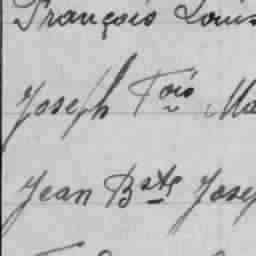 François Louis
Joseph Fois Ma
Jean Bste Jose